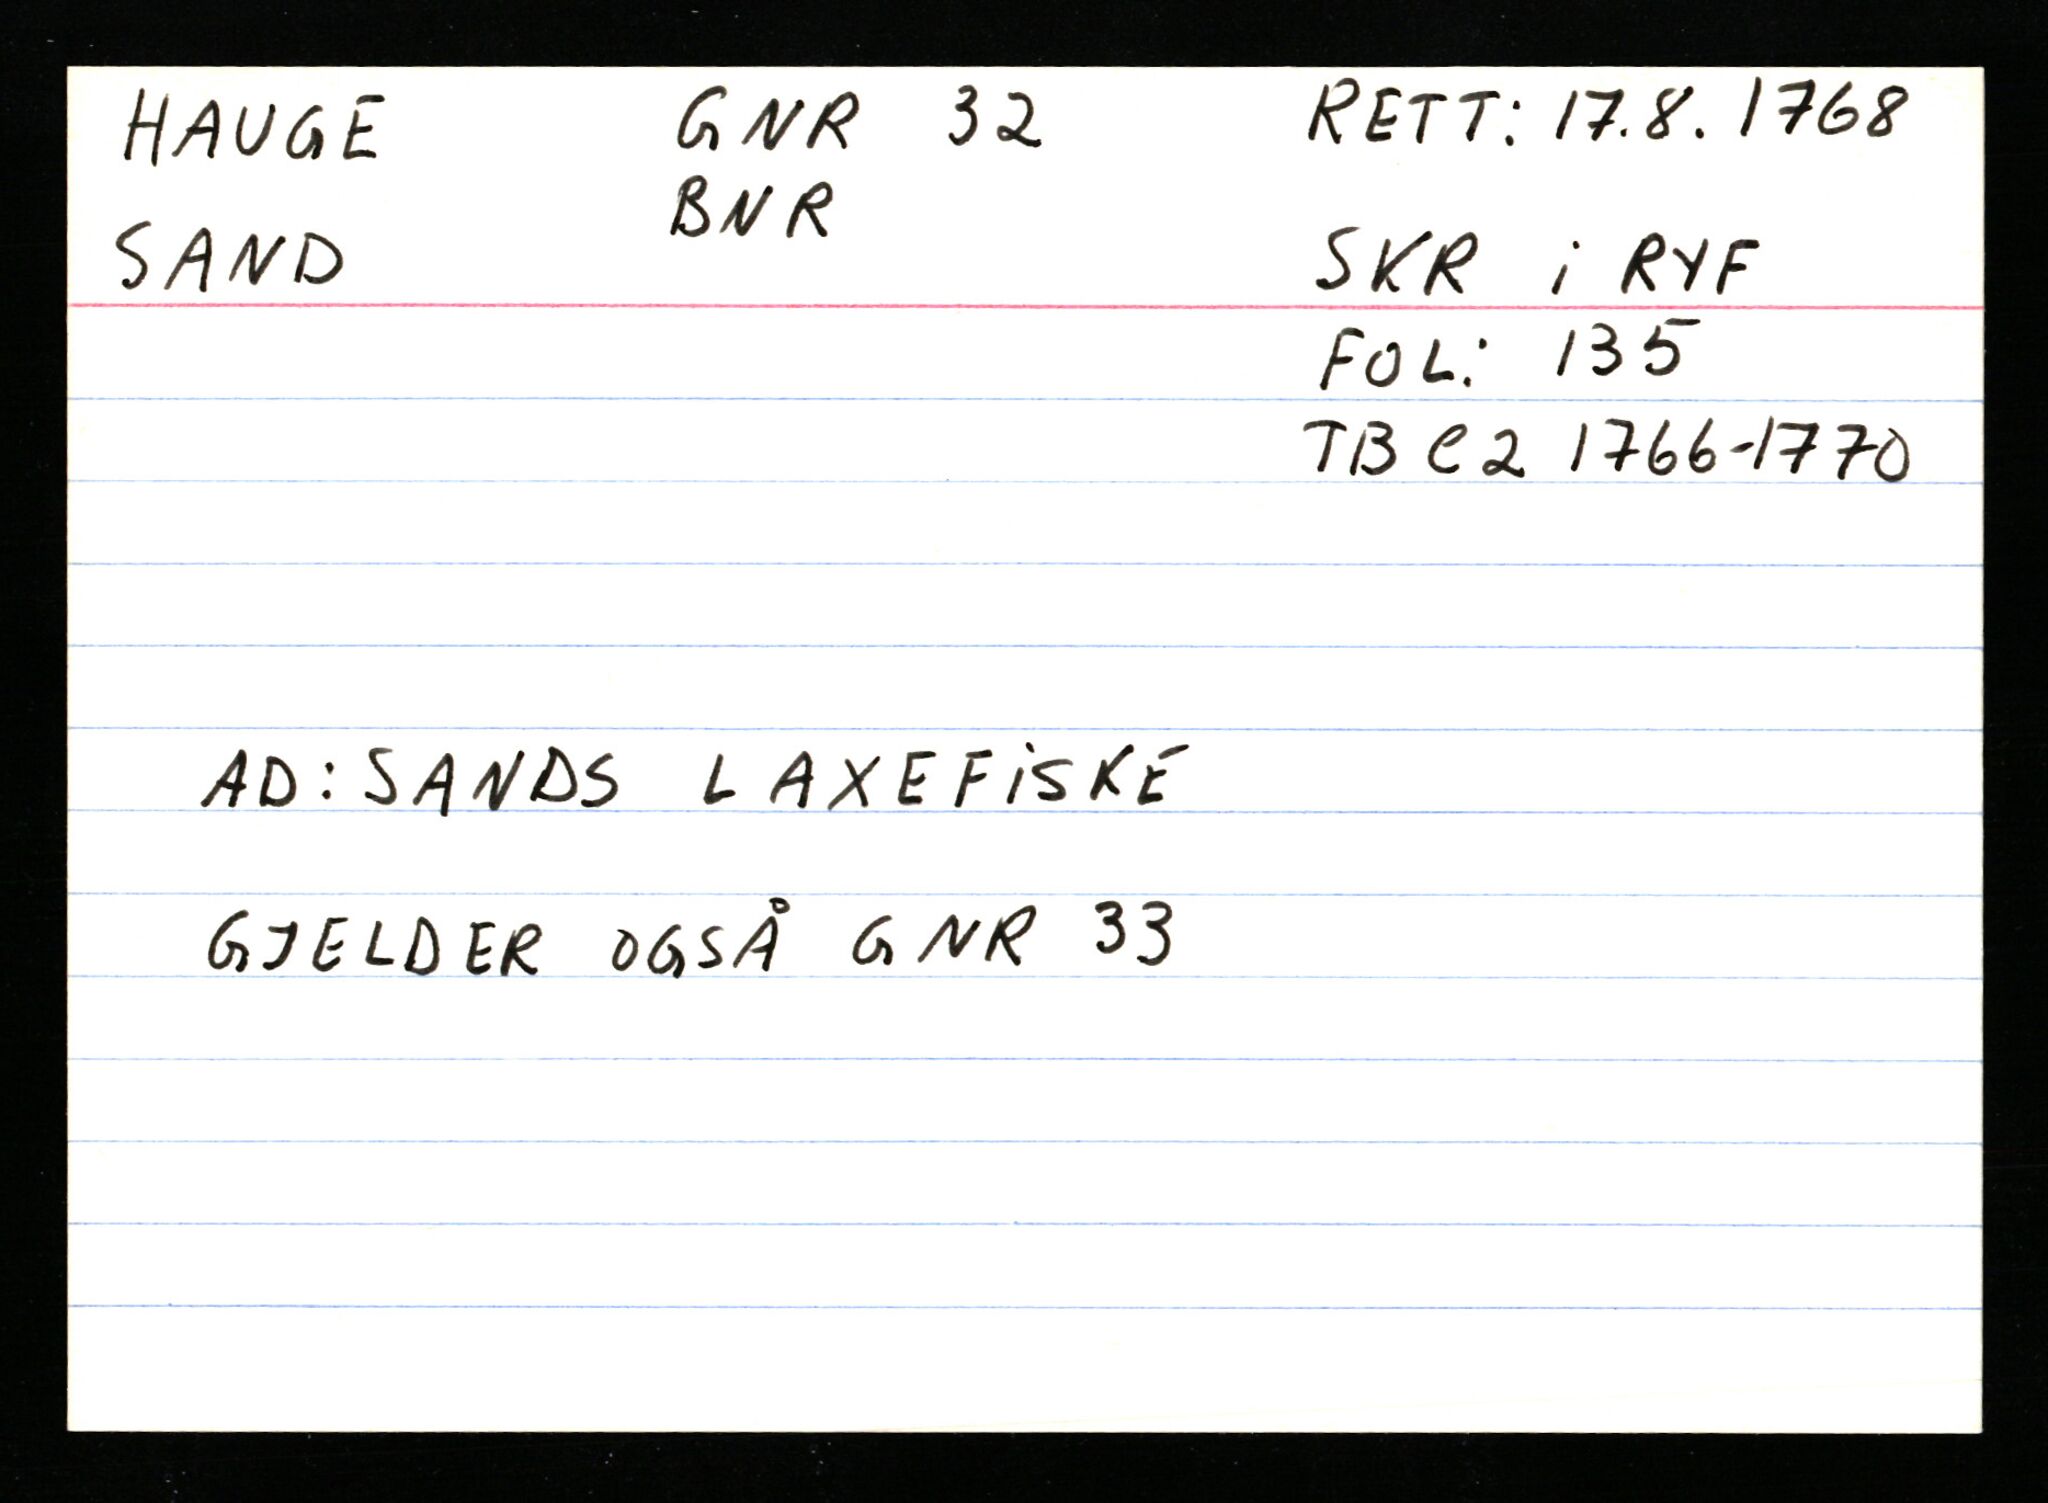 HAUGE GNR 32 RETT: 17.8.1768
BNR
SAND SKR i RYF
FOL: 135
TB C2 1766-1770
AD: SANDS LAXEFiSKE
GJELDER OGSÅ GNR 33